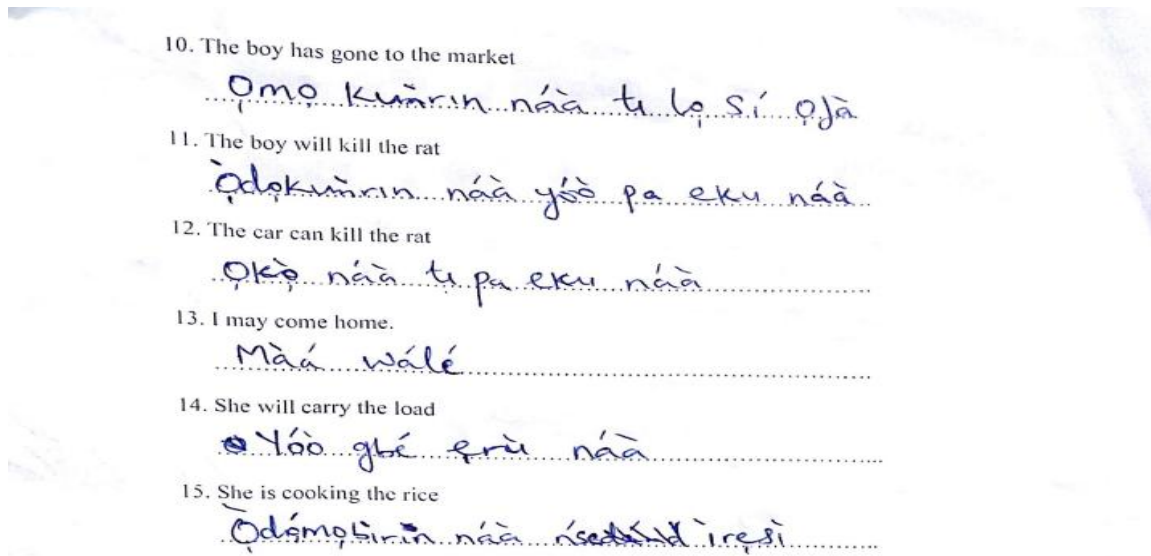 10. The boy has gone to the market
Ọmọ kùnrin náà ti lọ sí ọjà
11. The boy will kill the rat
Ọ̀dọkùnrin náà yóò pa eku náà
12. The car can kill the rat
Ọkọ̀ náà ti pa eku náà
13. I may come home.
Màá wálé
14. She will carry the load
Yóò gbé ẹrù náà
15. She is cooking the rice
Ọ̀dọ́mọbìrin náà ìrẹsì